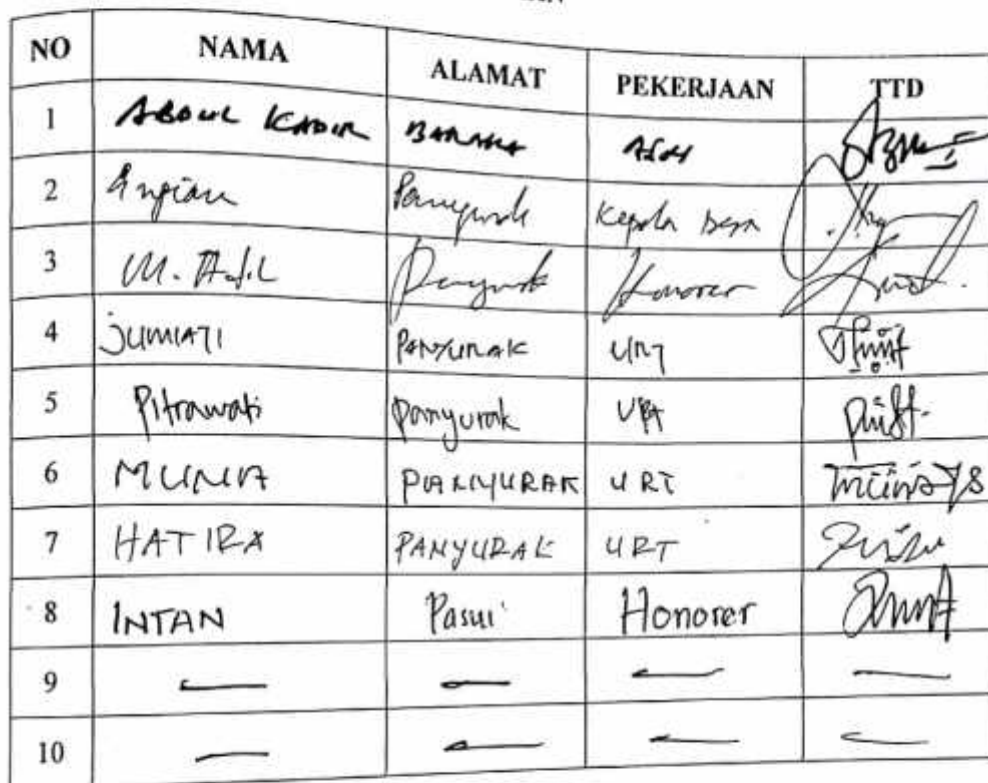 NO NAMA ALAMAT PEKERJAAN TTD
1 ABDUL KADIR BARAKA
2 Panyurak Kepala Desa
3 M. Panyurak Honorer
4 JUMIATI PANYURAK URT
5 Pitrawati Panyurak URT
6 MUNIA PANYURAK URT
7 HATIRA PANYURAK URT
8 INTAN Pasui Honorer
9 — — — —
10 — — — —